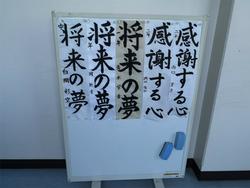 感謝する心
感謝する心
将来の夢
将来の夢
将来の夢